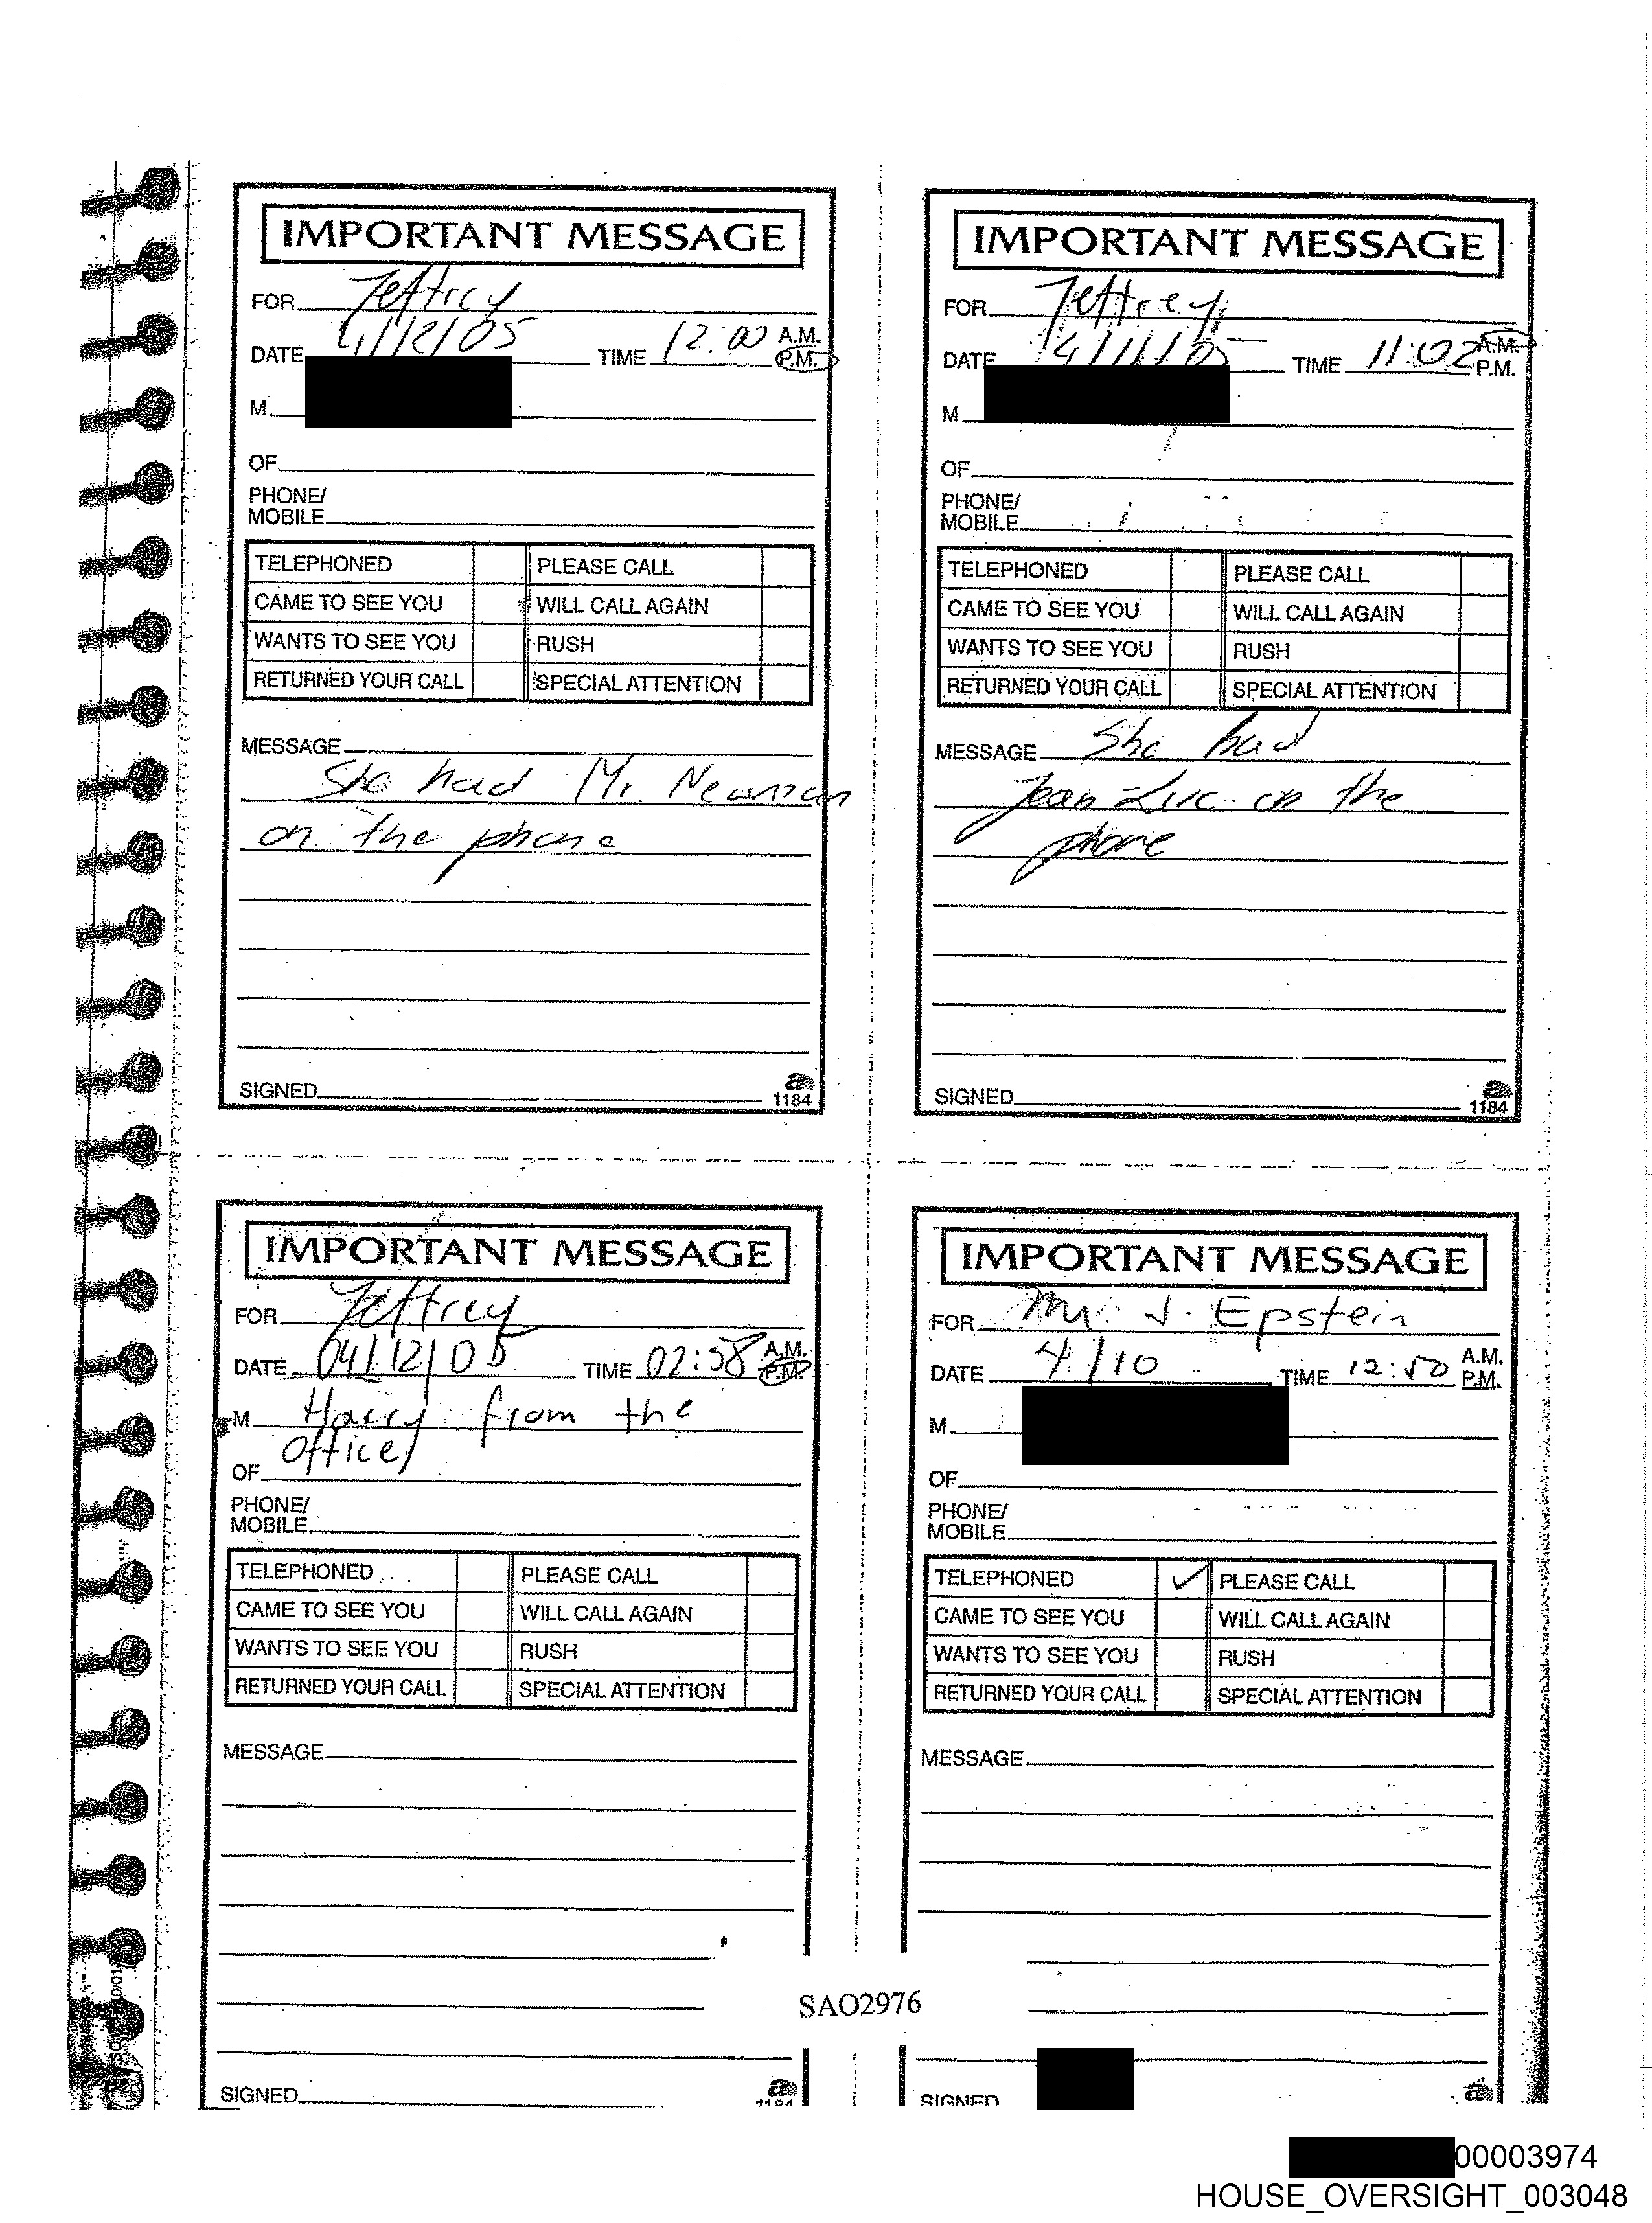 IMPORTANT MESSAGE
FOR Jeffrey
DATE 4/12/05 TIME 12:00 A.M.
P.M.
M
OF
PHONE/
MOBILE
TELEPHONED PLEASE CALL
CAME TO SEE YOU WILL CALL AGAIN
WANTS TO SEE YOU RUSH
RETURNED YOUR CALL SPECIAL ATTENTION
MESSAGE
She had Mr. Newman
on the phone
SIGNED
1184
IMPORTANT MESSAGE
FOR Jeffrey
DATE 4/11/05 TIME 11:02 A.M.
P.M.
M
OF
PHONE/
MOBILE
TELEPHONED PLEASE CALL
CAME TO SEE YOU WILL CALL AGAIN
WANTS TO SEE YOU RUSH
RETURNED YOUR CALL SPECIAL ATTENTION
MESSAGE She had
Jean-Luc on the
phone
SIGNED
1184
IMPORTANT MESSAGE
FOR Jeffrey
DATE 04/12/05 TIME 02:58 A.M.
P.M.
M Harry from the
office
OF
PHONE/
MOBILE
TELEPHONED PLEASE CALL
CAME TO SEE YOU WILL CALL AGAIN
WANTS TO SEE YOU RUSH
RETURNED YOUR CALL SPECIAL ATTENTION
MESSAGE
SIGNED
1184
IMPORTANT MESSAGE
FOR Mr. J. Epstein
DATE 4/10 TIME 12:50 A.M.
P.M.
M
OF
PHONE/
MOBILE
TELEPHONED ✓ PLEASE CALL
CAME TO SEE YOU WILL CALL AGAIN
WANTS TO SEE YOU RUSH
RETURNED YOUR CALL SPECIAL ATTENTION
MESSAGE
SIGNED
SAO2976
00003974
HOUSE_OVERSIGHT_003048